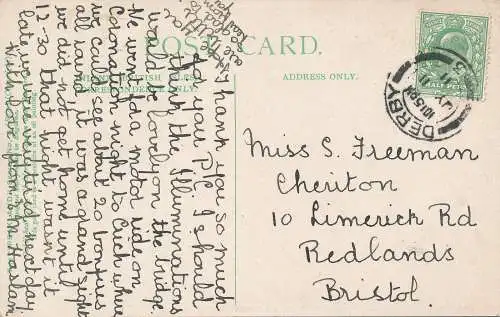 POST CARD.
ADDRESS ONLY.
DERBY
1015PM
JY
11
Miss S. Freeman
Cheriton
10 Limerick Rd
Redlands
Bristol.
Thank you so much
for your P.C. I should
think the Illuminations
would be lovely on the bridge.
We went for a motor ride on
Coronation night to Crich where
we could see about 20 bonfires
all round, it was a grand sight
we did not get home until
12-30 that night wasn't it
late we were very tired next day.
With love from E. M. Haslam